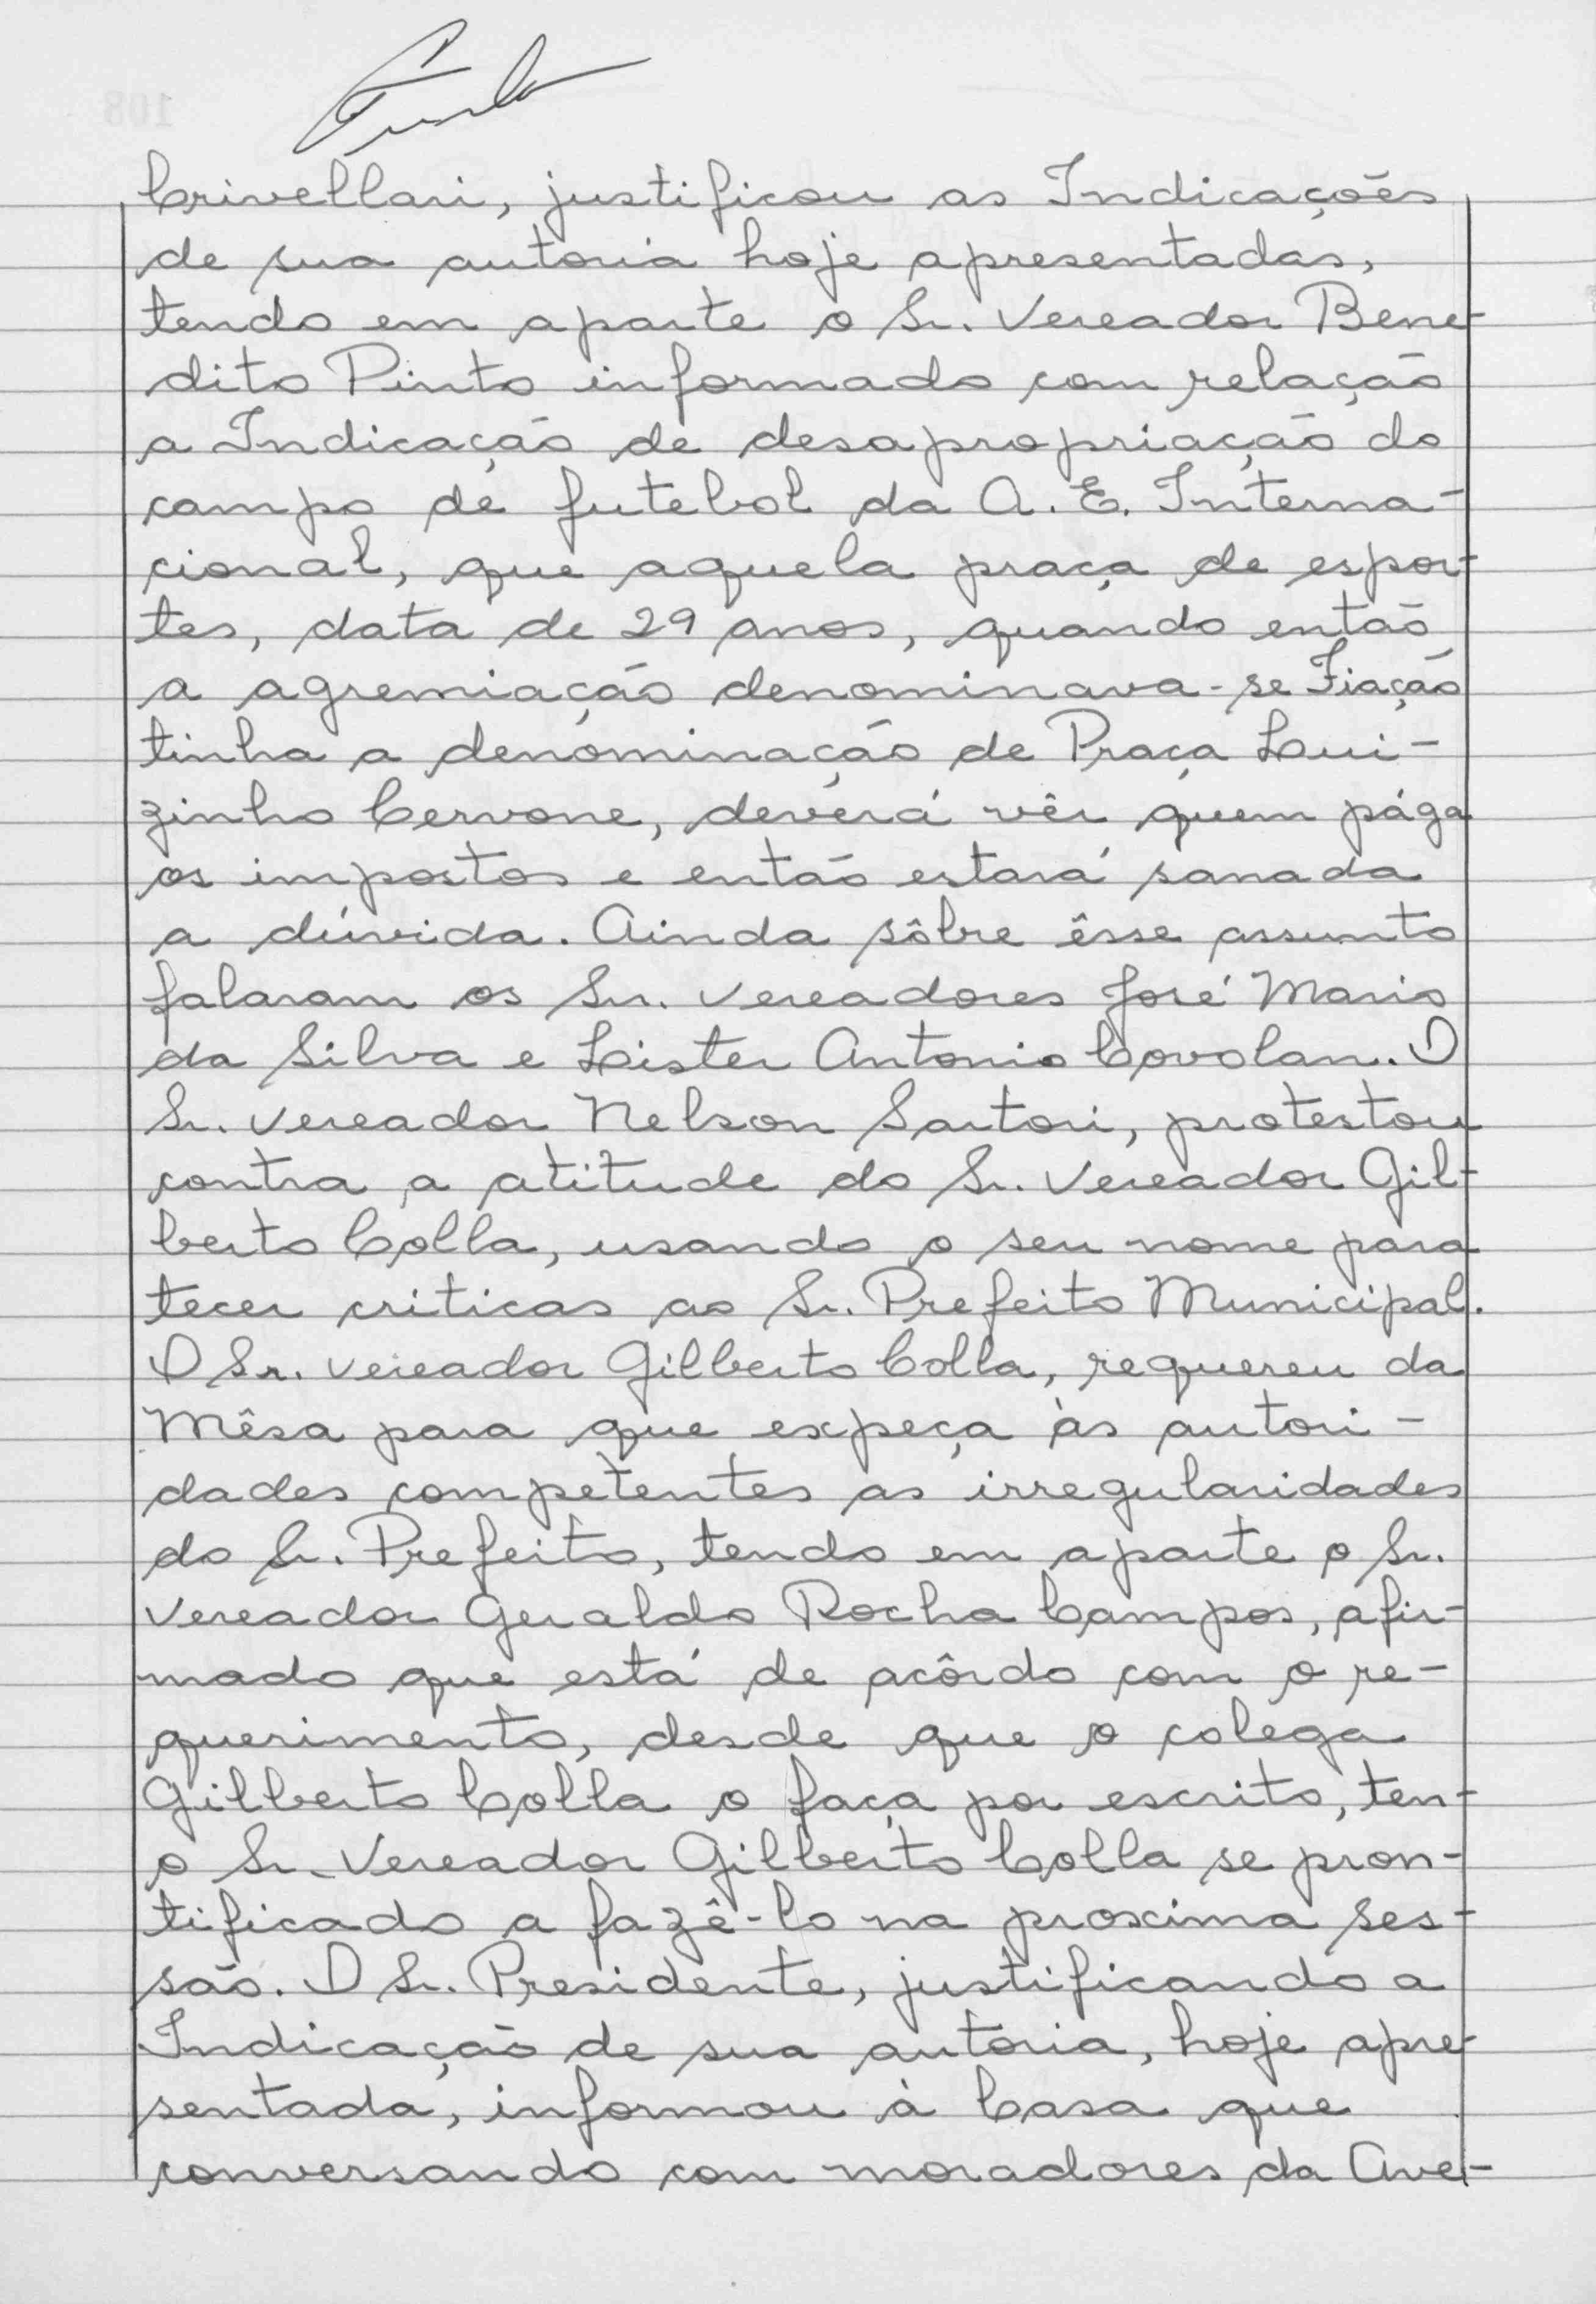 Crivellari, justificou as Indicações
de sua autoria hoje apresentadas,
tendo em aparte o Sr. Vereador Bene-
dito Pinto informado com relação
a Indicação de desapropriação do
campo de futebol da A. E. Interna-
cional, que aquela praça de espor-
tes, data de 29 anos, quando então
a agremiação denominava-se Fiação
tinha a denominação de Praça Lui-
zinho Cervone, deverá vêr quem pága
os impostos e então estará sanada
a dúvida. Ainda sôbre êsse assunto
falaram os Srs. Vereadores José Mario
da Silva e Lister Antonio Covolan. O
Sr. Vereador Nelson Sartori, protestou
contra a atitude do Sr. Vereador Gil-
berto Colla, usando o seu nome para
tecer criticas ao Sr. Prefeito Municipal.
O Sr. Vereador Gilberto Colla, requereu da
Mêsa para que expeça às autori-
dades competentes as irregularidades
do Sr. Prefeito, tendo em aparte o Sr.
Vereador Geraldo Rocha Campos, afir-
mado que está de acôrdo com o re-
querimento, desde que o colega
Gilberto Colla o faça por escrito, ten-
o Sr. Vereador Gilberto Colla se pron-
tificado a fazê-lo na proxima ses-
são. O Sr. Presidente, justificando a
Indicação de sua autoria, hoje apre-
sentada, informou à Casa que
conversando com moradores da Ave-